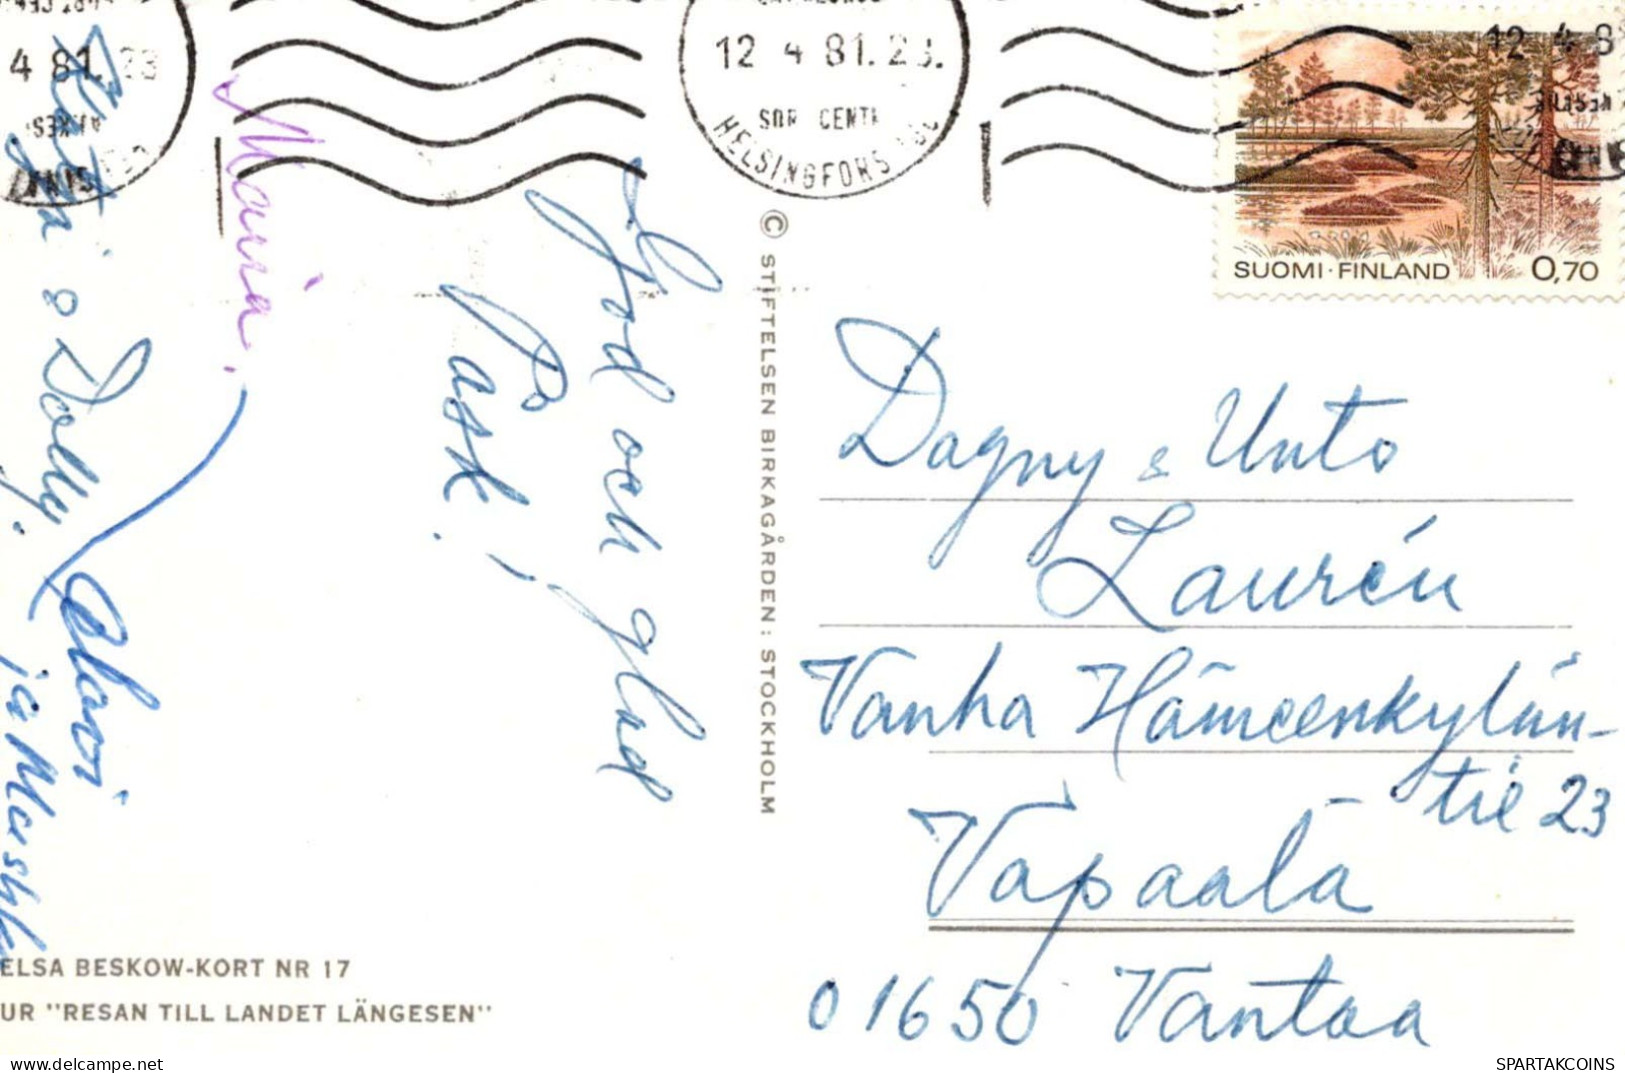 4 81. 23
12 4 81. 23.
HELSINGFORS
12 4 8
SUOMI · FINLAND 0,70
God och glad
Påsk!
Maria.
& Dolly.
ja
© STIFTELSEN BIRKAGÅRDEN: STOCKHOLM
Dagny & Unto
Laurén
Vanha Hämeenkylän-
tie 23
Vapaala
01650 Vantaa
ELSA BESKOW-KORT NR 17
UR "RESAN TILL LANDET LÄNGESEN"
SPARTAKCOINS